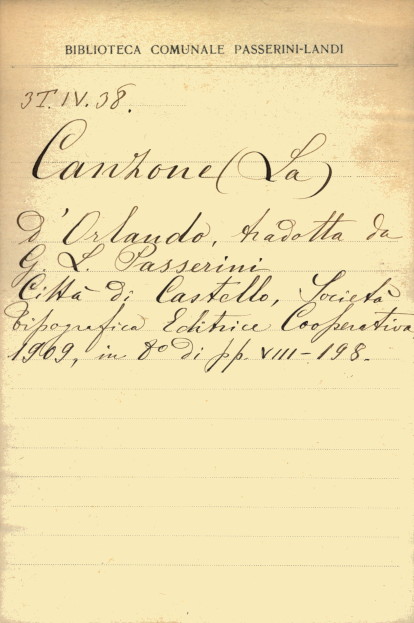 BIBLIOTECA COMUNALE PASSERINI-LANDI
3T.IV.38.
Canzone (La)
d'Orlando, tradotta da
G. L. Passerini
Città di Castello, Società
Tipografica Editrice Cooperativa,
1909, in 8º di pp. VIII-198.